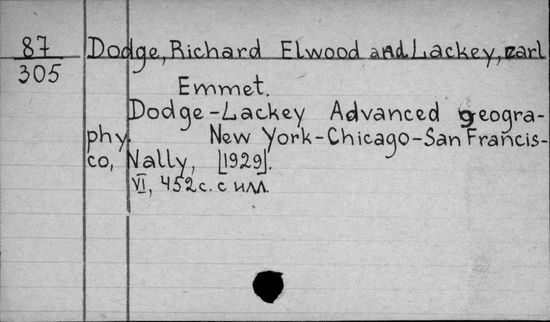 87 Dodge, Richard Elwood and Lackey, Earl
305 Emmet.
Dodge-Lackey Advanced geogra-
phy. New York-Chicago-San Francis-
co, Nally, [1929].
VI, 452с. с илл.